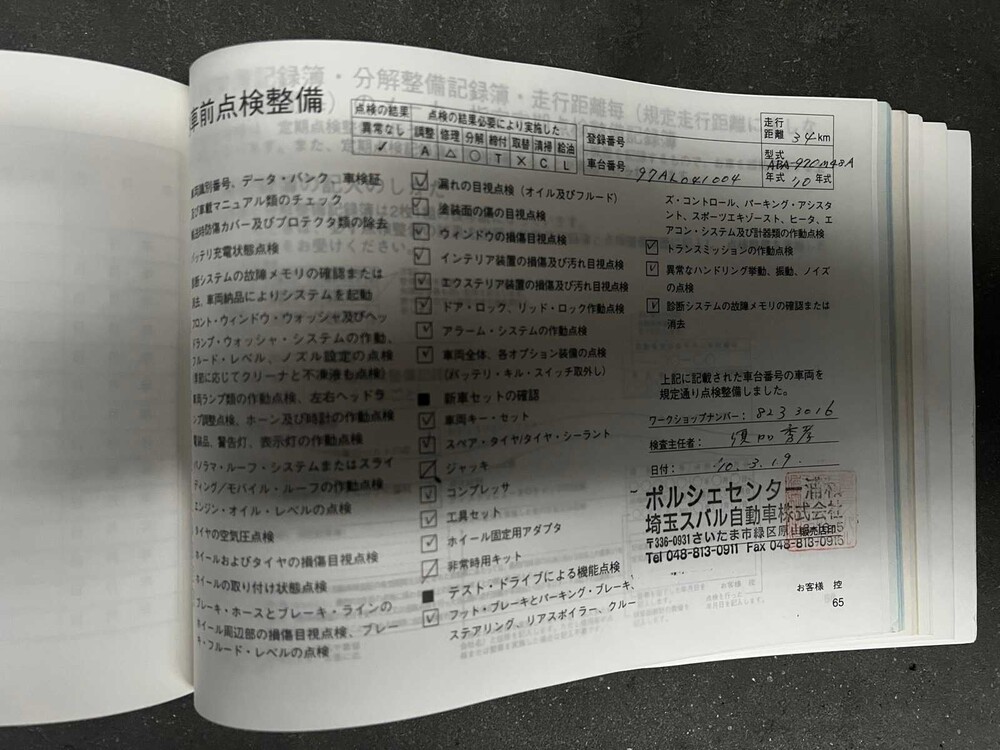 車前点検整備
点検の結果 点検の結果必要により実施した
異常なし 調整 修理 分解 締付 取替 清掃 給油
✓ A △ ○ T × C L
登録番号
走行距離 34km
車台番号 97AL041004
型式 ABA-970M48A
年式 '10 年式
識別番号、データ・バンク、車検証
及び車載マニュアル類のチェック
送時防傷カバー及びプロテクタ類の除去
バッテリ充電状態点検
診断システムの故障メモリの確認または
消去、車両納品によりシステムを起動
フロント・ウィンドウ・ウォッシャ及びヘッ
ドランプ・ウォッシャ・システムの作動、
フルード・レベル、ノズル設定の点検
(季節に応じてクリーナと不凍液も点検)
車両ランプ類の作動点検、左右ヘッドラ
ンプ調整点検、ホーン及び時計の作動点検
電装品、警告灯、表示灯の作動点検
パノラマ・ルーフ・システムまたはスライ
ディング/モバイル・ルーフの作動点検
エンジン・オイル・レベルの点検
タイヤの空気圧点検
ホイールおよびタイヤの損傷目視点検
ホイールの取り付け状態点検
ブレーキ・ホースとブレーキ・ラインの
ホイール周辺部の損傷目視点検、ブレー
キ・フルード・レベルの点検
漏れの目視点検（オイル及びフルード）
塗装面の傷の目視点検
ウィンドウの損傷目視点検
インテリア装置の損傷及び汚れ目視点検
エクステリア装置の損傷及び汚れ目視点検
ドア・ロック、リッド・ロック作動点検
アラーム・システムの作動点検
車両全体、各オプション装備の点検
(バッテリ・キル・スイッチ取外し)
■ 新車セットの確認
車両キー・セット
スペア・タイヤ/タイヤ・シーラント
ジャッキ
コンプレッサ
工具セット
ホイール固定用アダプタ
非常時用キット
■ テスト・ドライブによる機能点検
フット・ブレーキとパーキング・ブレーキ、
ステアリング、リアスポイラー、クルー
ズ・コントロール、パーキング・アシスタ
ント、スポーツエキゾースト、ヒータ、エ
アコン・システム及び計器類の作動点検
トランスミッションの作動点検
異常なハンドリング挙動、振動、ノイズ
の点検
診断システムの故障メモリの確認または
消去
上記に記載された車台番号の車両を
規定通り点検整備しました。
ワークショップナンバー： 8233016
検査主任者：
日付： '10. 3. 19.
ポルシェセンター浦和
埼玉スバル自動車株式会社
〒336-0931さいたま市緑区原山
販売店印
Tel 048-813-0911 Fax 048-813-0915
お客様 控
65